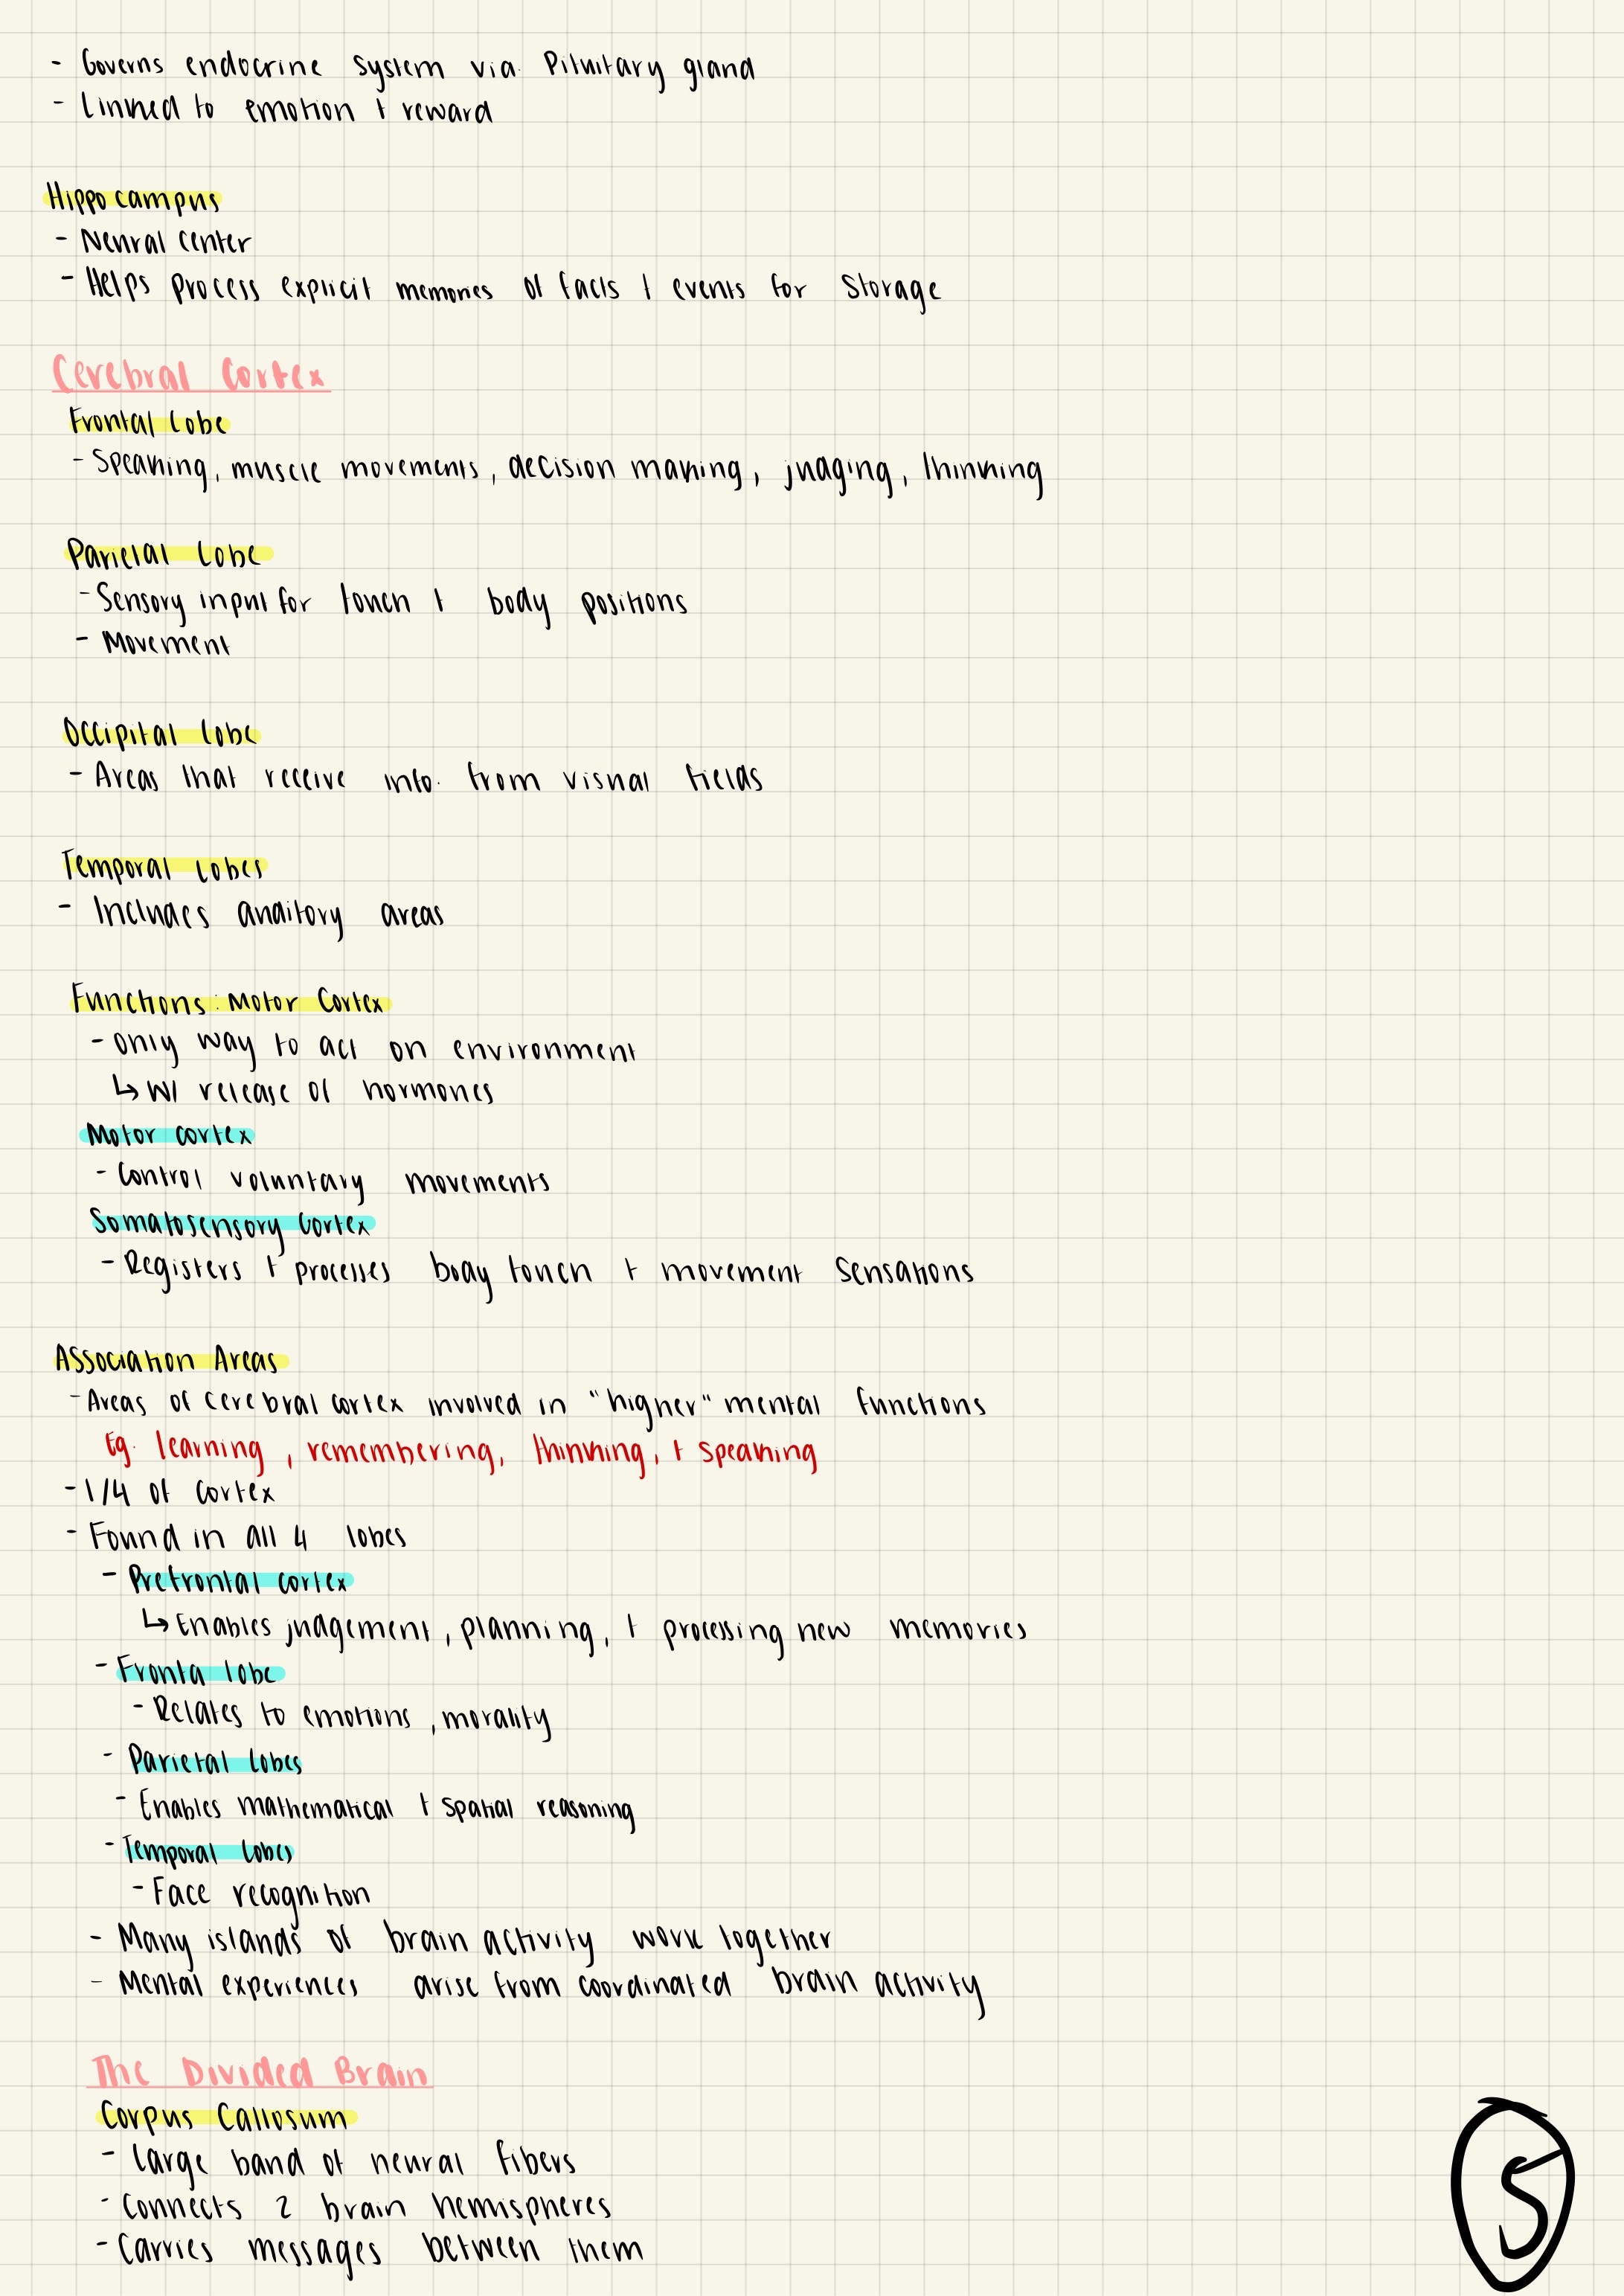 - Governs endocrine system via. Pituitary gland
- Linked to emotion + reward
Hippocampus
- Neural center
- Helps process explicit memories of facts + events for storage
Cerebral Cortex
Frontal Lobe
- Speaking, muscle movements, decision making, judging, thinking
Parietal Lobe
- Sensory input for touch + body positions
- Movement
Occipital lobe
- Areas that receive info. from visual fields
Temporal lobes
- Includes auditory areas
Functions: Motor Cortex
- only way to act on environment
↳ w/ release of hormones
Motor cortex
- Control voluntary movements
Somatosensory Cortex
- Registers + processes body touch + movement sensations
Association Areas
- Areas of cerebral cortex involved in "higher" mental functions
Eg. learning, remembering, thinking, + speaking
- 1/4 of cortex
- Found in all 4 lobes
- Prefrontal cortex
↳ Enables judgement, planning, + processing new memories
- Fronta lobe
- Relates to emotions, morality
- Parietal Lobes
- Enables mathematical + spatial reasoning
- Temporal Lobes
- Face recognition
- Many islands of brain activity work together
- Mental experiences arise from coordinated brain activity
The Divided Brain
Corpus Callosum
- Large band of neural fibers
- Connects 2 brain hemispheres
- Carries messages between them
5